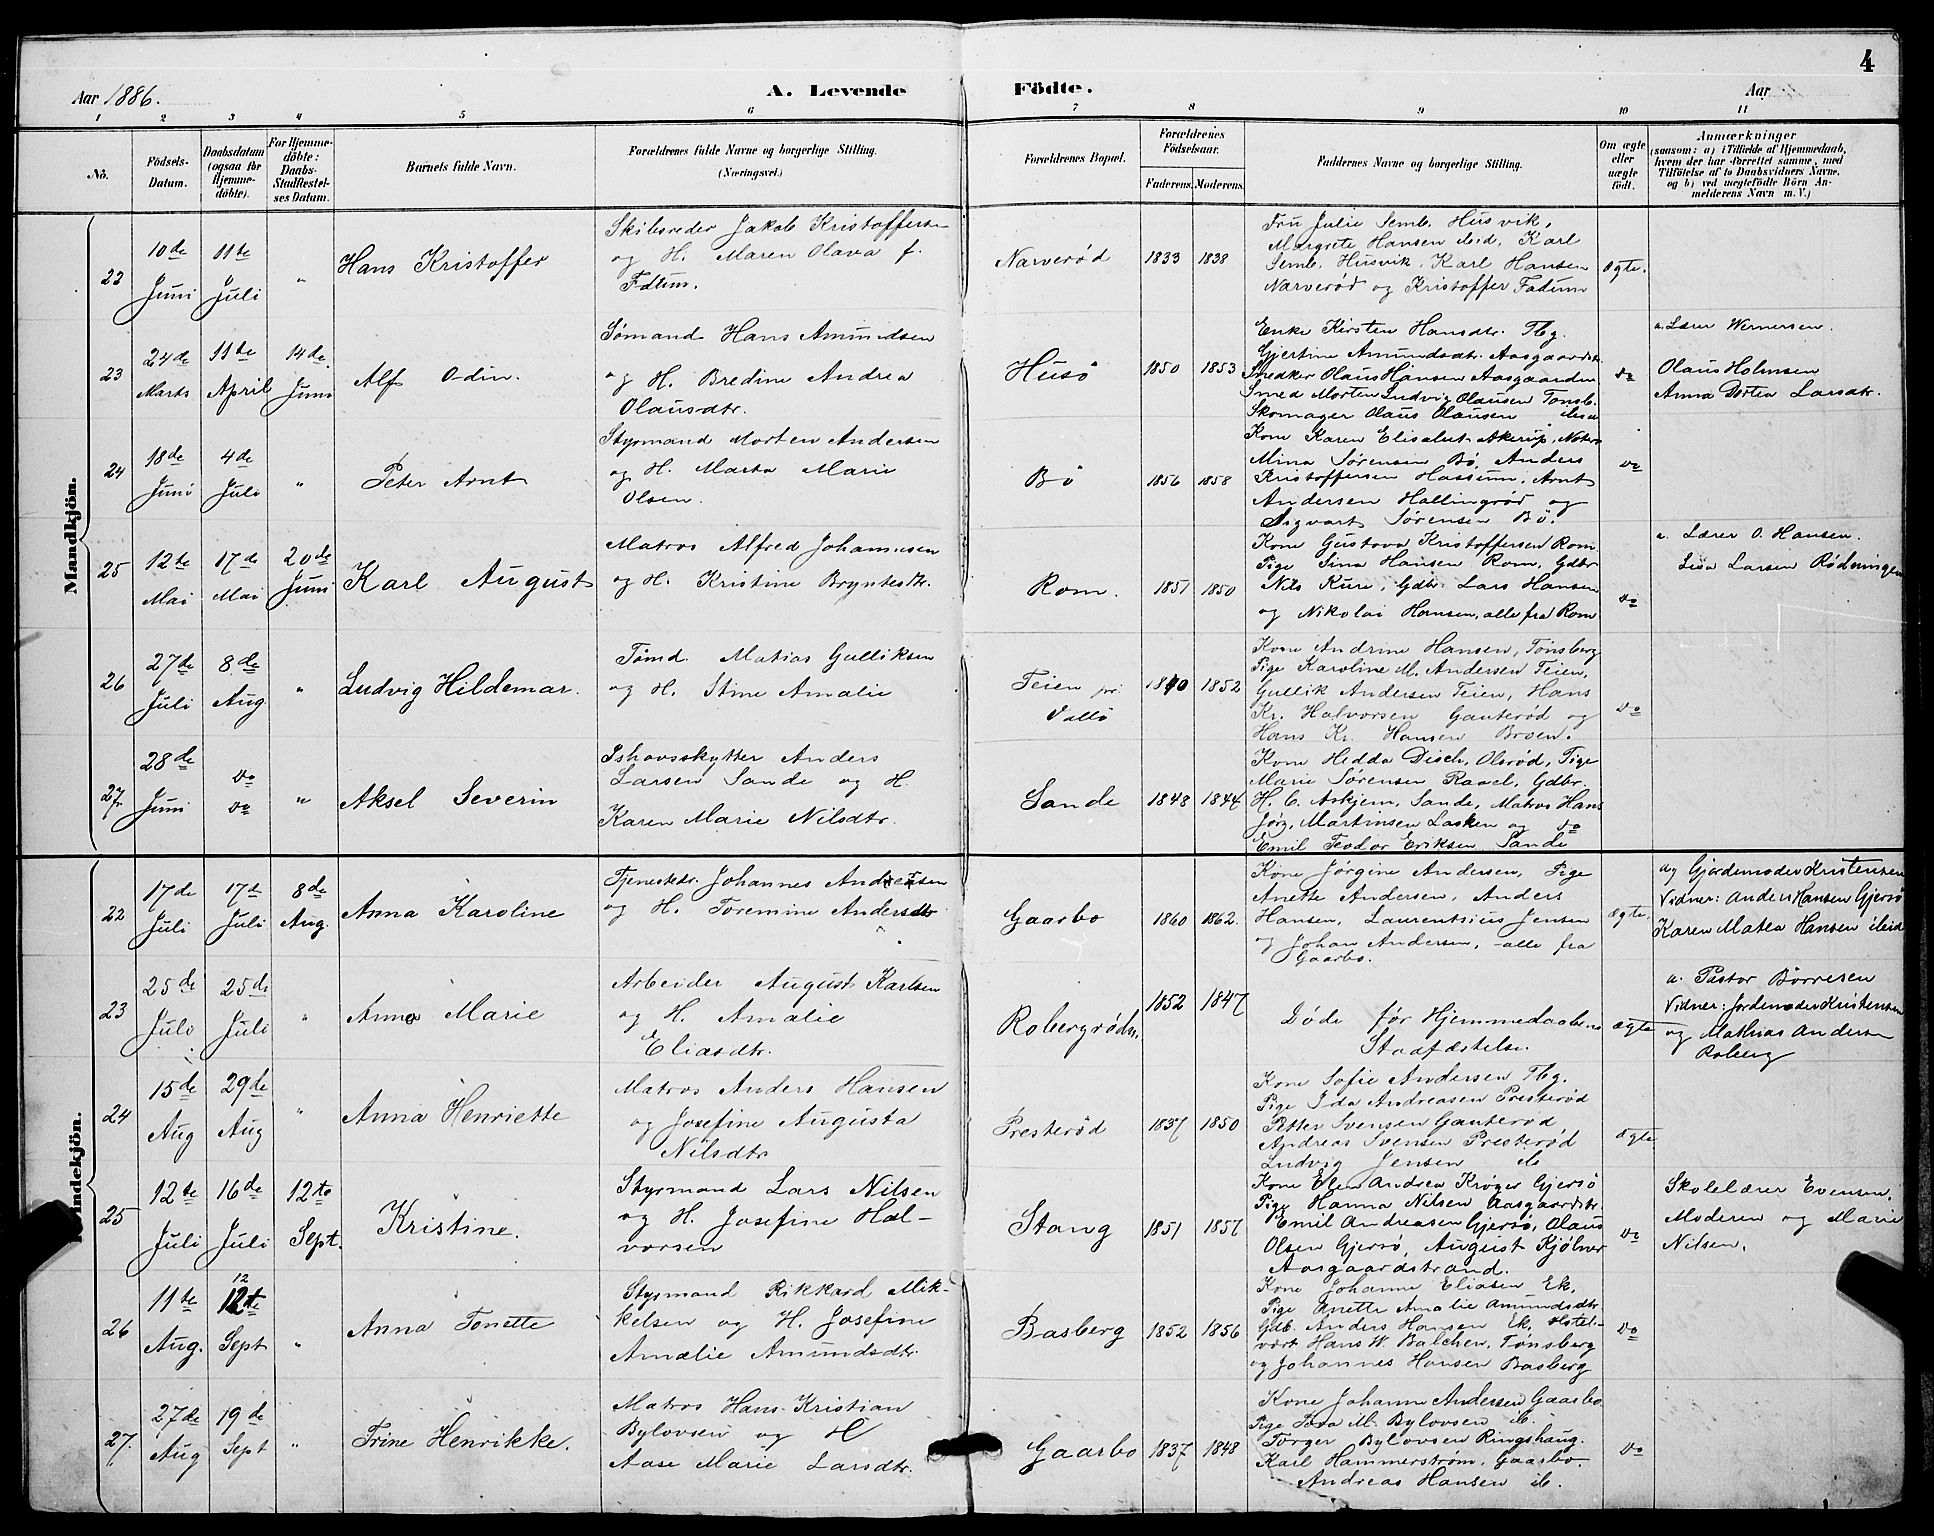 4
Aar 1886.
A. Levende Födte.
Aar
1 2 3 4 5 6 7 8 9 10 11
No.
Födsels-
Datum.
Daabsdatum
(ogsaa for
Hjemme-
döbte).
For Hjemme-
döbte:
Daabs-
Stadfæstel-
ses Datum.
Barnets fulde Navn.
Forældrenes fulde Navne og borgerlige Stilling.
(Næringsvei.)
Forældrenes Bopæl.
Forældrenes
Födselsaar.
Faderens. Moderens.
Faddernes Navne og borgerlige Stilling.
Om ægte
eller
uægte
født.
Anmærkninger
(saasom: a) i Tilfælde af Hjemmedaab,
hvem der har forrettet samme, med
Tilföielse af to Daabsvidners Navne,
og b) ved uægtefödte Börn An-
melderens Navn m. V.)
Mandkjön.
22
10de
Juni
11te
Juli
"
Hans Kristoffer
Skibsreder Jakob Kristoffersen
og H. Maren Olava f.
Fdum.
Narverød
1833 1838
Fru Julie Semb, Husvik,
Margrete Hansen ibid, Karl
Semb, Husvik, Karl Hansen
Narverød og Kristoffer Fadum
Ægte.
23
24de
Marts
11te
April
14de
Juni
Alf Odin.
Sømand Hans Amundsen
og H. Bredine Andrea
Olausdtr.
Husø
1850 1853
Enke Kirsten Hansdtr. Tbg.
Gjertine Amundsdtr. Aasgaardstr
Snedker Olaus Hansen Aasgaarden
Smed Morten Ludvig Olausen Tønsb.
Skomager Olaus Olausen
do
a. Lærer Wernersen.
Olaus Holmsen
Anna Dortea Larsdtr.
24
18de
Juni
4de
Juli
"
Peter Arnt
Styrmand Morten Andersen
og H. Marta Marie
Olsen.
Bø
1856 1858
Kone Karen Elisabet Akerup, Noterø
Mina Sørensen Bø, Anders
Kristoffersen Hassum, Arnt
Andersen Hallingrød og
Sigvart Sørensen Bø.
do
25
12te
Mai
17de
Mai
20de
Juni
Karl August
Matros Alfred Johannesen
og H. Kristine Bryntesdtr.
Rom.
1851 1850
Kone Gustava Kristoffersen Rom
Pige Sina Hansen Rom, Gdbr
Nils Kure, Gdbr. Lars Hansen
og Nikolai Hansen, alle fra Rom
do
a. Lærer O. Hansen.
Lisa Larsen Rødningen
26
27de
Juli
8de
Aug
"
Ludvig Hildemar.
Tømd. Matias Gulliksen
og H. Stine Amalie
Teien pr.
Vallø
1840 1852
Kone Andrine Hansen, Tønsberg
Pige Karoline M. Andersen Teien,
Gullik Andersen Teien, Hans
Kr. Halvorsen Gauterød og
Hans Kr. Hansen Broen.
do
27
28de
Juni
do
do
"
Aksel Severin
Ishavsskytter Anders
Larsen Sande og H.
Karen Marie Nilsdtr.
Sande
1848 1844
Kone Hedda Disch, Olsrød, Pige
Marie Sørensen Raael, Gdbr.
H. C. Askjem, Sande, Matros Hans
Jørg. Martinsen Lasken og
Emil Teodor Eriksen Sande
do
Kvindekjön.
22
17de
Juli
17de
Juli
8de
Aug.
Anna Karoline
Tjenestedr. Johannes Andersen
og H. Toremine Andersdtr
Gaarbo
1860 1862.
Kone Jørgine Andersen, Pige
Anette Andersen, Anders
Hansen, Laurentsius Jensen
og Johan Andersen, alle fra
Gaarbo.
Ægte.
a, Gjordemoder Kristensen
Vidner: Anders Hansen Gjersø
Karen Matea Hansen ibid
23
25de
Juli
25de
Juli
"
Anna Marie
Arbeider August Karlsen
og H. Amalie
Eliasdtr.
Robergrødn.
1852 1847
Døde før Hjemmedaabens
Stadfæstelse.
Ægte
a. Pastor Børresen
Vidner: Jordemoder Kristensen
og Mathias Andersen
Roberg
24
15de
Aug
29de
Aug
"
Anna Henriette
Matros Anders Hansen
og Josefine Augusta
Nilsdtr
Presterød
1837 1850
Kone Sofie Andersen Tbg.
Pige Ida Andreasen Presterød
Petter Svensen Gauterød,
Andreas Svensen Presterød
Ludvig Jensen ib
Ægte
25
12te
Juli
16de
Juli
12te
Sept.
Kristine.
Styrmand Lars Nilsen
og H. Josefine Hal-
vorsen
Stang
1851 1857
Kone Elen Andrea Krøger Gjersø
Pige Hanna Nilsen Aasgaardstr
Emil Andreasen Gjersø, Olaus
Olsen Gjersø, August Kjølner
Aasgaardstrand.
do
Skolelærer Evensen,
Moderen og Marie
Nilsen.
26
11te
Aug.
12
12te
Sept
"
Anna Tonette
Styrmand Rikkard Mik-
kelsen og H. Josefine
Amalie Amundsdtr.
Basberg
1852 1856
Kone Johanne Eliasen Ek,
Pige Anette Amalie Amundsdtr
Gdb. Anders Hansen Ek, Hotel-
vært Hans W. Balchen, Tønsberg
og Johannes Hansen Basberg
do
27.
27de
Aug
19de
Sept
"
Trine Henrikke.
Matros Hans Kristian
Bylovsen og H
Aase Marie Larsdtr.
Gaarbo
1837 1848
Kone Johanne Andersen Gaarbo
Pige M. Bylovsen ib.
Torger Bylovsen Ringshaug.
Karl Hammerstrøm, Gaarbo.
Andreas Hansen ib.
do